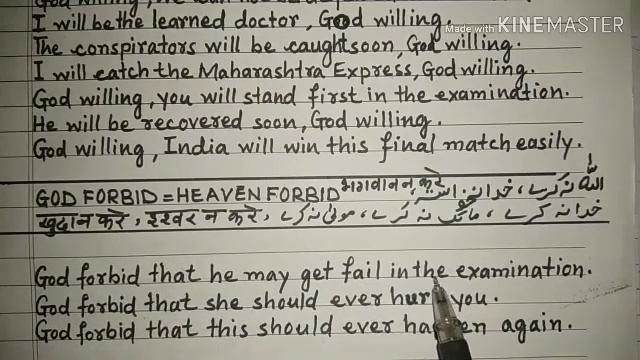 Made with KINEMASTER
I will be the learned doctor, God willing.
The conspirators will be caught soon, God willing.
I will catch the Maharashtra Express, God willing.
God willing, you will stand first in the examination.
He will be recovered soon, God willing.
God willing, India will win this final match easily.
GOD FORBID = HEAVEN FORBID भगवान न करे اللہ نہ کرے، خدا نہ
खुदा न करे, इश्वर न करे, خدا نہ کرے، مالک نہ کرے، مولیٰ نہ کرے
God forbid that he may get fail in the examination.
God forbid that she should ever hurt you.
God forbid that this should ever happen again.